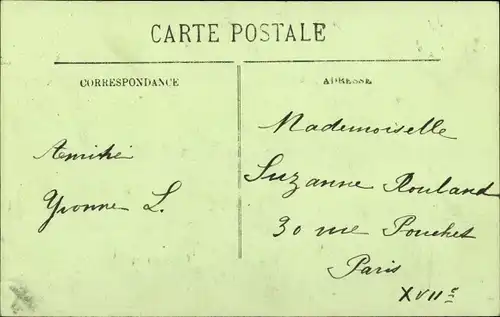 CARTE POSTALE
CORRESPONDANCE
ADRESSE
Amitié
Yvonne L.
Mademoiselle
Suzanne Rouland
30 rue Pouchet
Paris
XVIIe